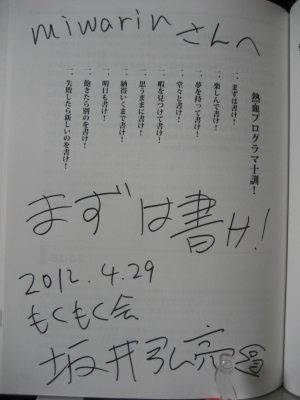 miwarinさんへ
熱血プログラマ十訓！
一、まずは書け！
一、楽しんで書け！
一、夢を持って書け！
一、堂々と書け！
一、暇を見つけて書け！
一、思うままに書け！
一、納得いくまで書け！
一、明日も書け！
一、飽きたら別のを書け！
一、失敗したら新しいのを書け！
まずは書け！
2012.4.29
もくもく会
坂井弘亮